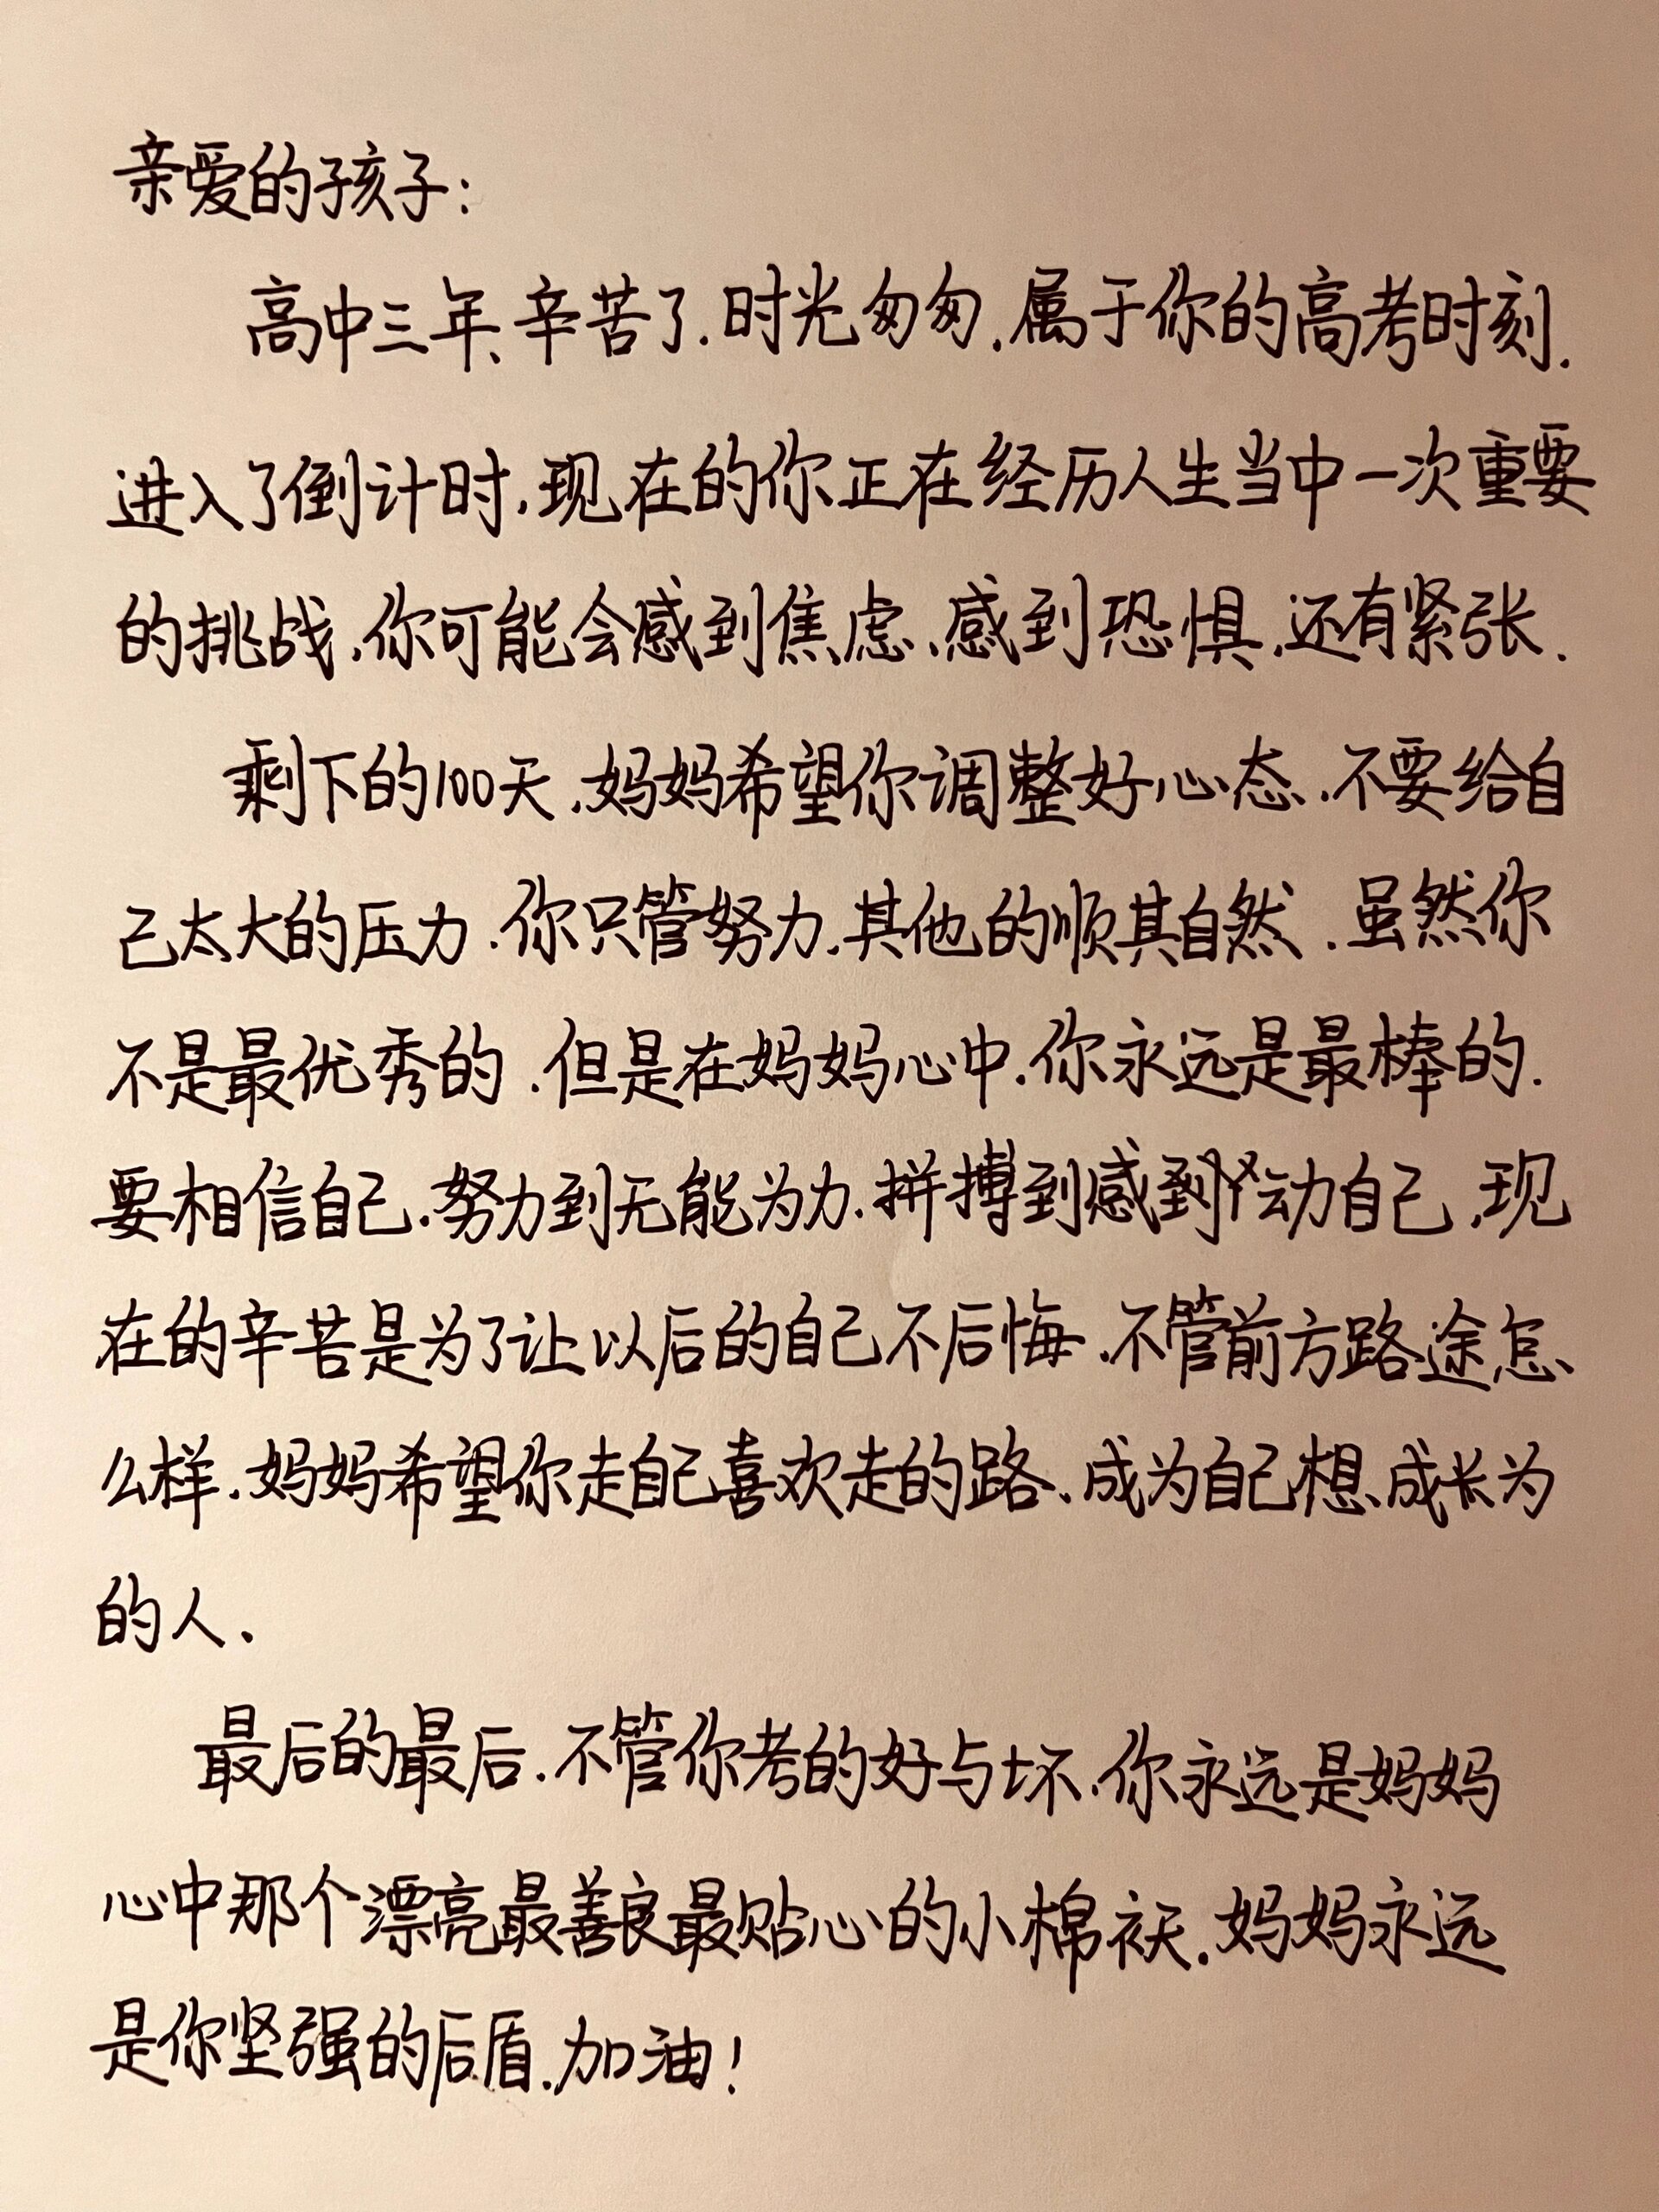 亲爱的孩子：
高中三年、辛苦了.时光匆匆.属于你的高考时刻.
进入了倒计时.现在的你正在经历人生当中一次重要
的挑战.你可能会感到焦虑、感到恐惧.还有紧张.
剩下的100天.妈妈希望你调整好心态.不要给自
己太大的压力.你只管努力.其他的顺其自然.虽然你
不是最优秀的.但是在妈妈心中.你永远是最棒的.
要相信自己.努力到无能为力.拼搏到感动自己.现
在的辛苦是为了让以后的自己不后悔.不管前方路途怎
么样.妈妈希望你走自己喜欢走的路、成为自己想成长为
的人、
最后的最后.不管你考的好与坏.你永远是妈妈
心中那个漂亮最善良最贴心的小棉袄.妈妈永远
是你坚强的后盾.加油!